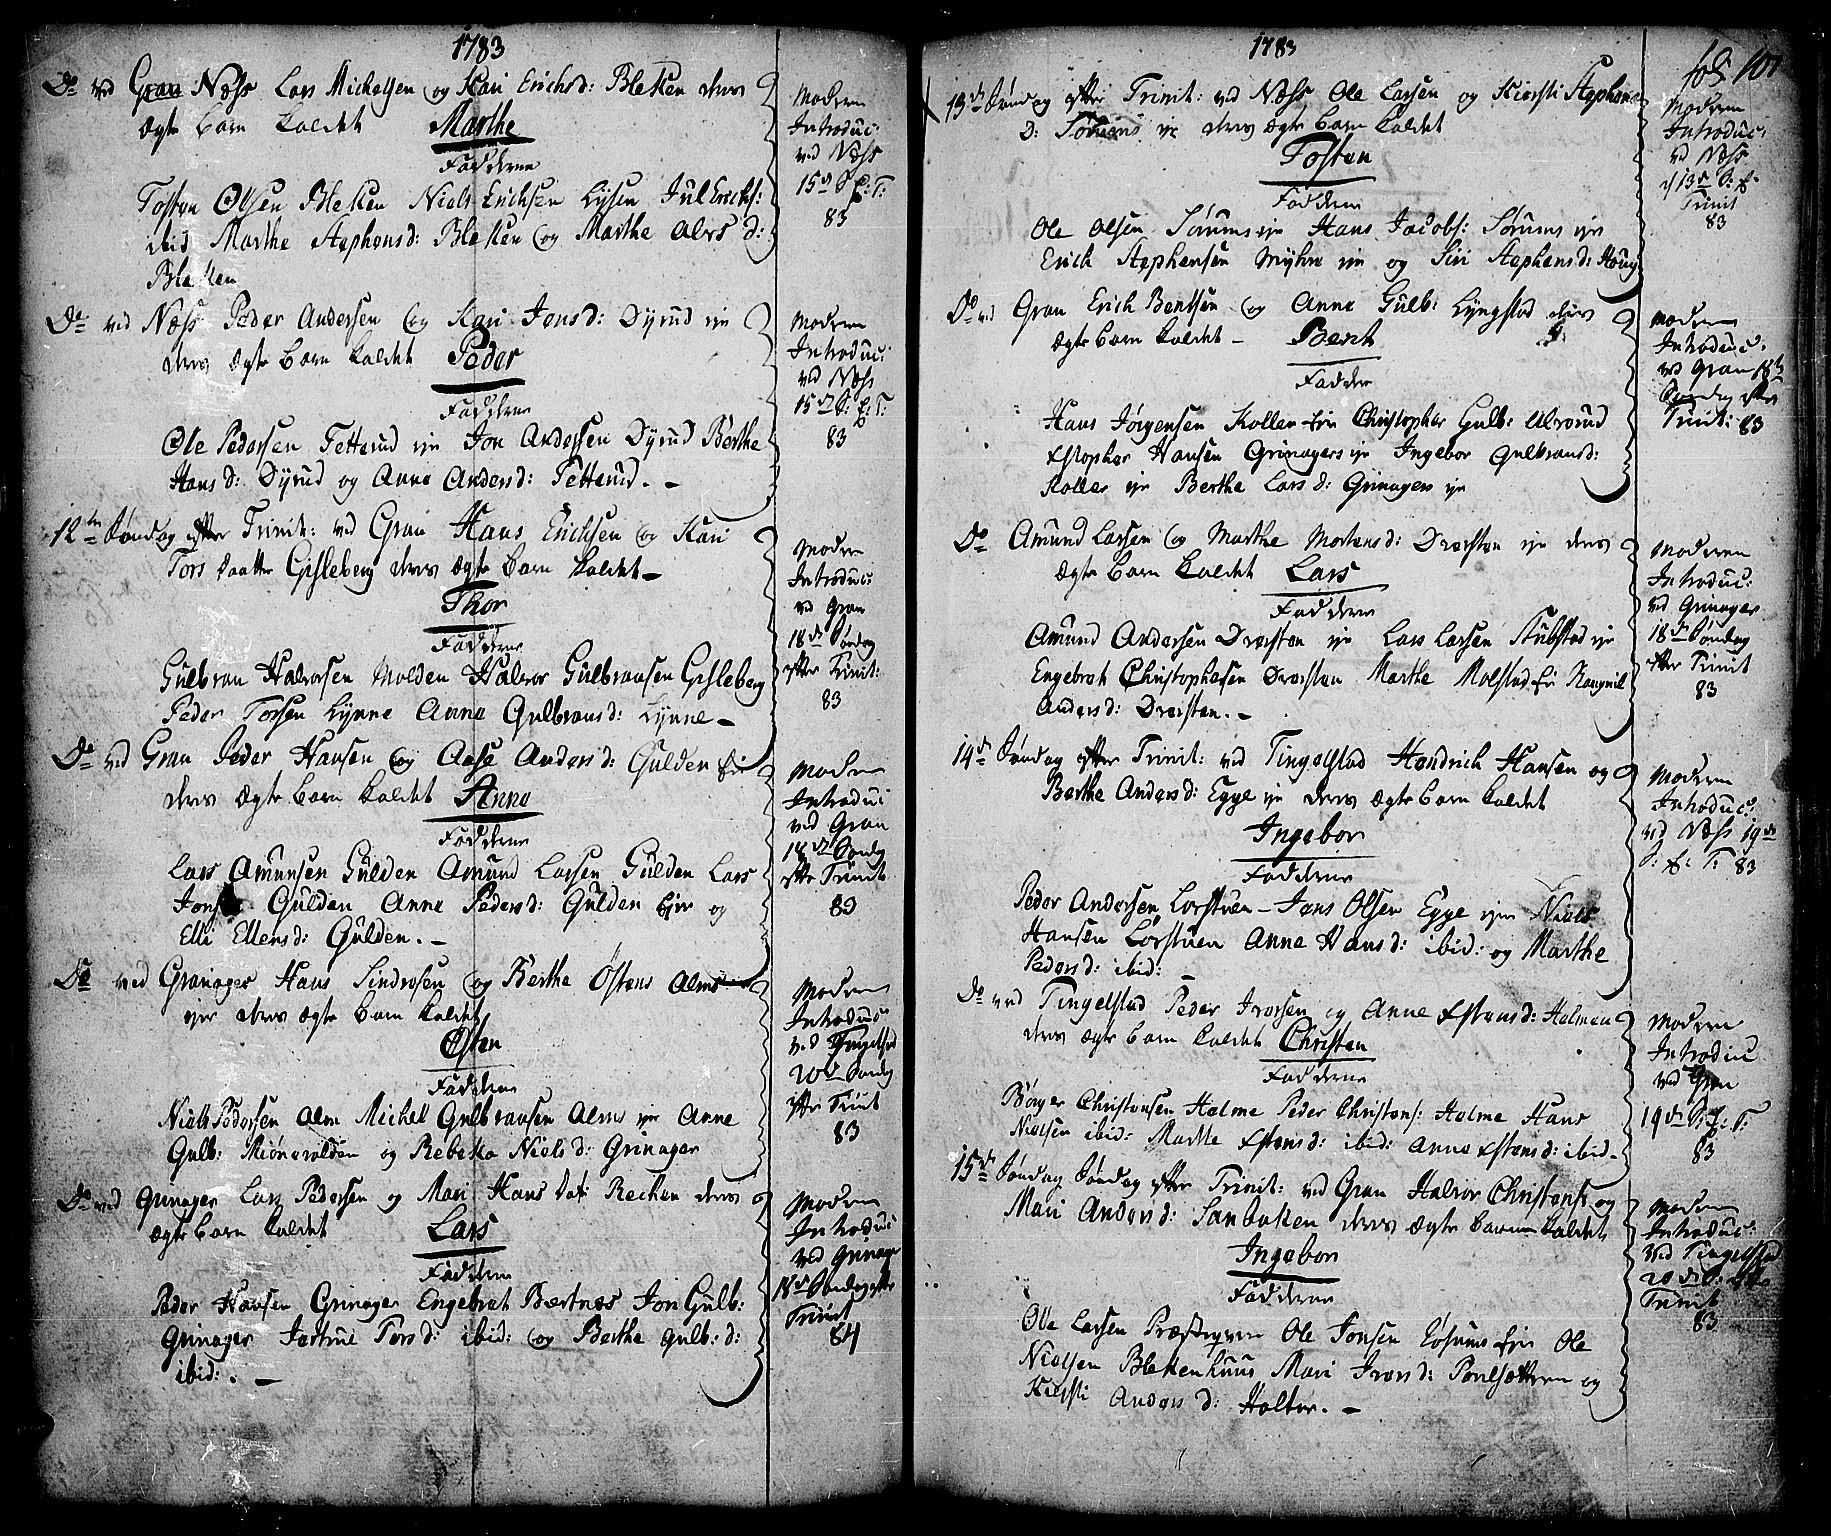 1783
Do ved Gran Næss Lars Mickelsen og Kari Erichsd: Blekken deres
Ægte Barn kaldet Marthe
Fadderne
Tosten Olsen Blekken Niels Erichsen Lysen Juul Erichs:
ibid Marthe Stephensd: Blekken og Marthe Alvs d:
Blekken
Moderen
Introduc:
ved Næss
15de S: E: T:
83
Do ved Næss Peder Andersen og Kari Jensd: Dyrud eje
deres Ægte Barn kaldet Peder
Fadderne
Ole Pedersen Tetterud eje Jon Andersen Dyrud Berthe
Hans d: Dyrud og Anne Andersd: Tetterud. -
Moderen
Introduc:
ved Næss
15de S: E: T:
83
12te Søndag efter Trinit: ved Gran Hans Erichsen og Kari
Tors Daatter Gisleberg deres Ægte Barn kaldet -
Thor
Fadderne
Gulbran Halvorsen Molden Halvor Gulbransen Gisleberg
Peder Torsen Lynne Anne Gulbransd: Lynne -
Moderen
Introduc:
ved Gran
18de Søndag
efter Trinit:
83
Do ved Gran Peder Hansen og Aase Andersd: Gulden eje
deres Ægte Barn kaldet Anne
Fadderne
Lars Amunsen Gulden Amund Larsen Gulden Lars
Gulden Anne Pedersd: Gulden Eje og
Elli Ellensd: Gulden. -
Moderen
Introduc
ved Gran
18de Søndag
efter Trinit
83
Do ved Granager Hans Sindresen og Berthe Østens Alms
eje deres Ægte Barn kaldet
Østen
Fadderne
Niels Pedersen Alm Michel Gulbransen Alms eje Anne
Gulb: og Rebekka Niels d: Grinager
Moderen
Introduc
ved Tingelstad
20de Søndag
efter Trinit
83
Do ved Grinager Lars Pedersen og Mari Hans dat: Rechen deres
Ægte Barn kaldet Lars
Fadderne
Peder Hansen Grinager Engebret Bertnes Jon Gulb:
Grinager Jertrue Tors d: ibid: og Berthe Gulb: d:
ibid: . -
Moderen
Introduc
ved Grinager
18de Søndag efter
Trinit
84
1783
fol 101
13de Søndag efter Trinit: ved Næss Ole Larsen og Kiersti Stephens
D: Sørums eje deres Ægte Barn kaldet
Tosten
Fadderne
Ole Olsen Sørums eje Hans Jacobs: Sørums eje
Erich Stephensen Myhre eje og Siri Stephensd: Houg
Moderen
Introduc:
ved Næss
13de S: E:
Trinit
83
Do ved Gran Erich Bentsen og Anne Gulb: Lyngstad deres
Ægte Barn kaldet - Bent
Fadder
Hans Jørgensen Kollen Eje Christopher Gulb: Alverud
Estopher Hansen Grinagers eje Ingebor Gulbransd:
Koller eje Berthe Lars d: Grinagers eje
Moderen
Introduc:
ved Gran 18de
Søndag efter
Trinit: 83
Do Amund Larsen og Marthe Mortensd: Dværsten eje deres
Ægte Barn kaldet Lars
Fadderne
Amund Andersen Dværsten eje Lars Larsen Stubstad eje
Engebret Christophersen Dværsten Marthe Molstad Eje Rangnil
Andersd: Dværsten. -
Moderen
Introduc:
ved Grinager
18de Søndag
efter Trinit
83
14de Søndag efter Trinit: ved Tingelstad Hendrich Hansen og
Berthe Andersd: Egge eje deres Ægte Barn kaldet
Ingebor
Fadderne
Peder Andersen Lorstuen - Jens Olsen Egge ejer Niels
Hansen Lorstuen Anne Hansd: ibid: og Marthe
Pedersd: ibid:
Moderen
Introduc:
ved Næss 19de
S: E: T: 83
Do ved Tingelstad Peder Iversen og Anne Estensd: Halmen
deres Ægte Barn kaldet Christen
Fadderne
Børger Christensen Halme Peder Christens: Halme Hans
Nielsen ibid: Marthe Estensd: ibid: Anne Estensd: ibid. -
Moderen
Introduc
ved Gran
19de S: E: T:
83
15de Søndag Søndag efter Trinit: ved Gran Halvor Christens: og
Mari Andersd: Sanbakken deres Ægte Barn kaldet
Ingebor
Fadderne
Ole Larsen Præstegaren Ole Jonsen Eje Ole
Nielsen Blekkenhuus Mari Iversd: og
Kiersti Anders d: Holter. -
Moderen
Introduc:
ved Tingelstad
20de S: efter
Trinit
83